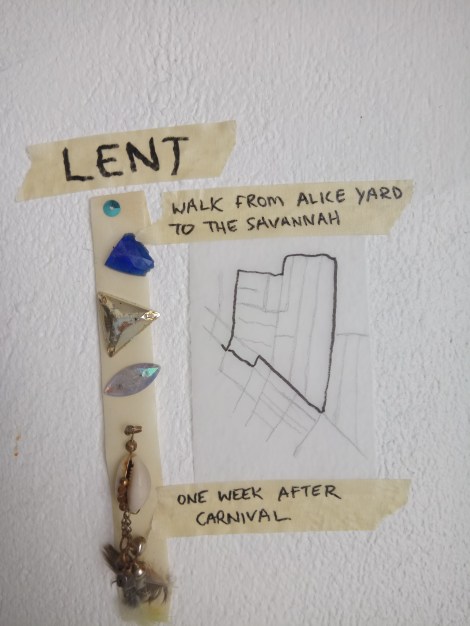 LENT
WALK FROM ALICE YARD
TO THE SAVANNAH
ONE WEEK AFTER
CARNIVAL.